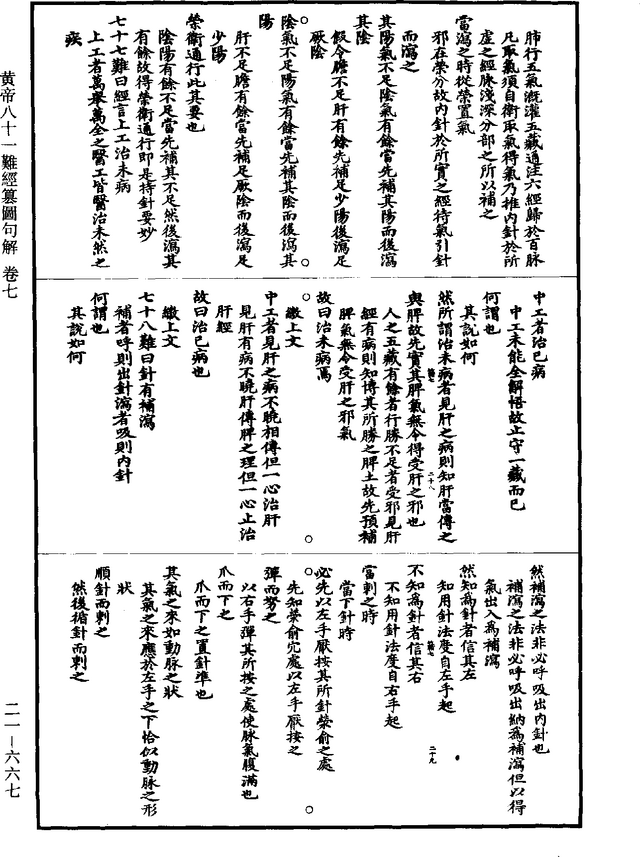 肺行五氣溉灌五藏通注六經歸於百脉
凡取氣須自衛取氣得氣乃推内針於所
虛之經脉淺深分部之所以補之
當瀉之時從榮置氣
邪在榮分故内針於所實之經待氣引針
而瀉之
其陽氣不足陰氣有餘當先補其陽而後瀉
其陰
假令膽不足肝有餘先補足少陽後瀉足
厥陰
陰氣不足陽氣有餘當先補其陰而後瀉其
陽
肝不足膽有餘當先補足厥陰而後瀉足
少陽
榮衛通行此其要也
陰陽有餘不足當先補其不足然後瀉其
有餘故得榮衛通行即是持針要妙
七十七難曰經言上工治未病
上工者萬舉萬全之醫工皆醫治未然之
疾
中工者治已病
中工未能全解悟故止守一藏而已
何謂也
其說如何
然所謂治未病者見肝之病則知肝當傳之
與脾故先實其脾氣無令得受肝之邪也
人之五藏有餘者行勝不足者受邪見肝
經有病則知傳其所勝之脾土故先預補
脾氣無令受肝之邪氣
故曰治未病焉
繳上文
中工者見肝之病不曉相傳但一心治肝
見肝有病不曉肝傳脾之理但一心止治
肝經
故曰治已病也
繳上文
七十八難曰針有補瀉
補者呼則出針瀉者吸則内針
何謂也
其說如何
然補瀉之法非必呼吸出内針也
補瀉之法非必呼吸出納為補瀉但以得
氣出入為補瀉
然知為針者信其左
知用針法度自左手起
不知為針者信其右
不知用針法度自右手起
當刺之時
當下針時
必先以左手厭按其所針榮俞之處
先知榮俞穴處以左手厭按之
彈而努之
以右手彈其所按之處使脉氣䐜滿也
爪而下之
爪而下之置針準也
其氣之來如動脉之狀
其氣之來應於左手之下恰似動脉之形
狀
順針而刺之
然後循針而刺之
黄帝八十一難經纂圖句解 卷七
二一－六六七